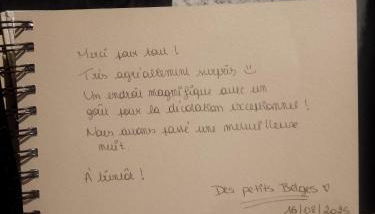 Merci pour tout !
Très agréablement surpris ☺
Un endroit magnifique avec un
goût pour la décoration exceptionnel !
Nous avons passé une merveilleuse
nuit.
À bientôt !
Des petits Belges ♥
16/08/2025